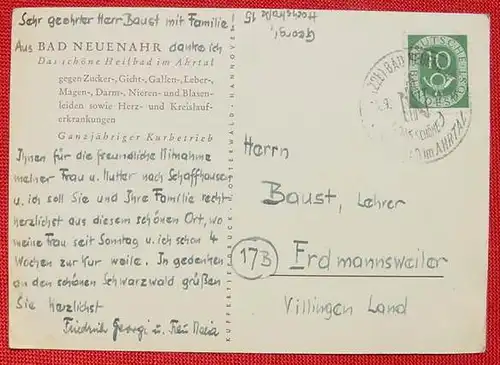 Sehr geehrter Herr Baust mit Familie
Aus BAD NEUENAHR danke ich
Das schöne Heilbad im Ahrtal
gegen Zucker-, Gicht-, Gallen-, Leber-,
Magen-, Darm-, Nieren- und Blasen-
leiden sowie Herz- und Kreislauf-
erkrankungen
Ganzjähriger Kurbetrieb
Ihnen für die freundliche Mitnahme
meiner Frau u. Mutter nach Schaffhausen
u. ich soll Sie und Ihre Familie recht
herzlichst aus diesem schönen Ort, wo
meine Frau seit Sonntag u. ich schon 4
Wochen zur Kur weile. In gedenken
an den schönen Schwarzwald grüßen
Sie herzlichst
Friedrich Georgi u. Frau Maria
Georgi,
Hochstraße 15
KUPFERTIEFDRUCK
OSTERWALD - HANNOVER
DEUTSCHE
10
BAD
IM AHRTAL
Herrn
Baust, Lehrer
17B
Erdmannsweiler
Villingen Land